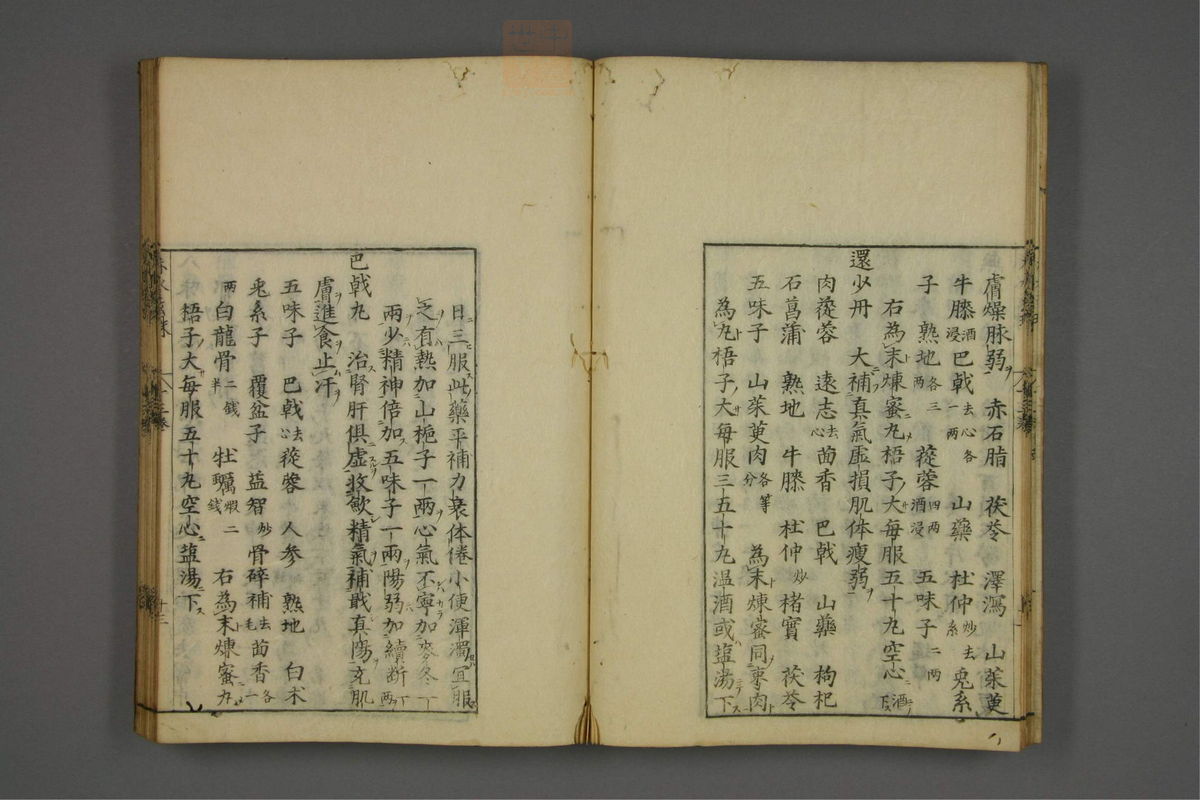 膚燥脉弱 赤石脂 茯苓 澤瀉 山茱萸
牛膝酒浸 巴戟去心各一两 山藥 杜仲炒去系 兎系
子 熟地各三两 蓯蓉四两酒浸 五味子二两
右為末煉蜜丸梧子大每服五十丸空心酒下
還少丹 大補真氣虚損肌体瘦弱
肉蓯蓉 遠志去心 茴香 巴戟 山藥 枸杞
石菖蒲 熟地 牛膝 杜仲炒 楮實 茯苓
五味子 山茱萸肉各等分 為末煉蜜同棗肉
為丸梧子大每服三五十丸温酒或塩湯下
日三服此藥平補力衰体倦小便渾濁宜服
之有熱加山梔子一兩心氣不寧加麥冬一
兩少精神倍加五味子一兩陽弱加續斷一两
巴戟丸 治腎肝俱虚收歛精氣補戢真陽充肌
膚進食止汗
五味子 巴戟去心 蓯蓉 人参 熟地 白朮
兎系子 覆盆子 益智炒 骨碎補去毛 茴香各一
两 白龍骨二錢半 牡蠣煆二錢 右為末煉蜜丸
梧子大每服五十丸空心塩湯下
十三